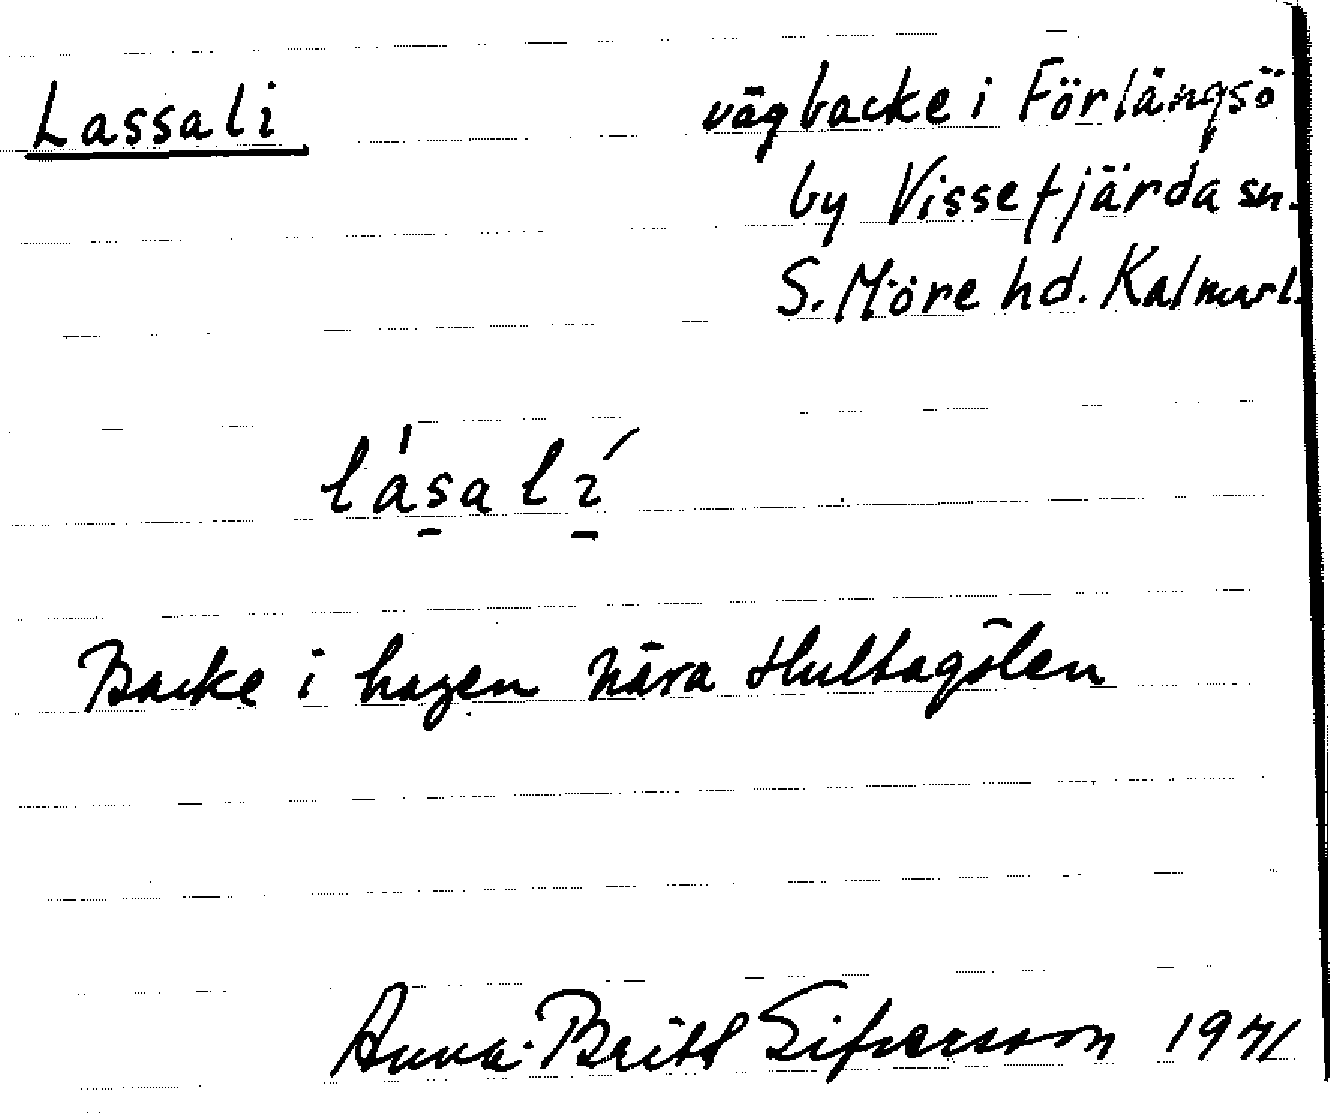 Lassali
vägbacke i Förlängsö
by Vissefjärda sn.
S. Möre hd. Kalmarl.
lásalí
Backe i hagen nära Hultagölen
Anna-Britt Sifversson 1971